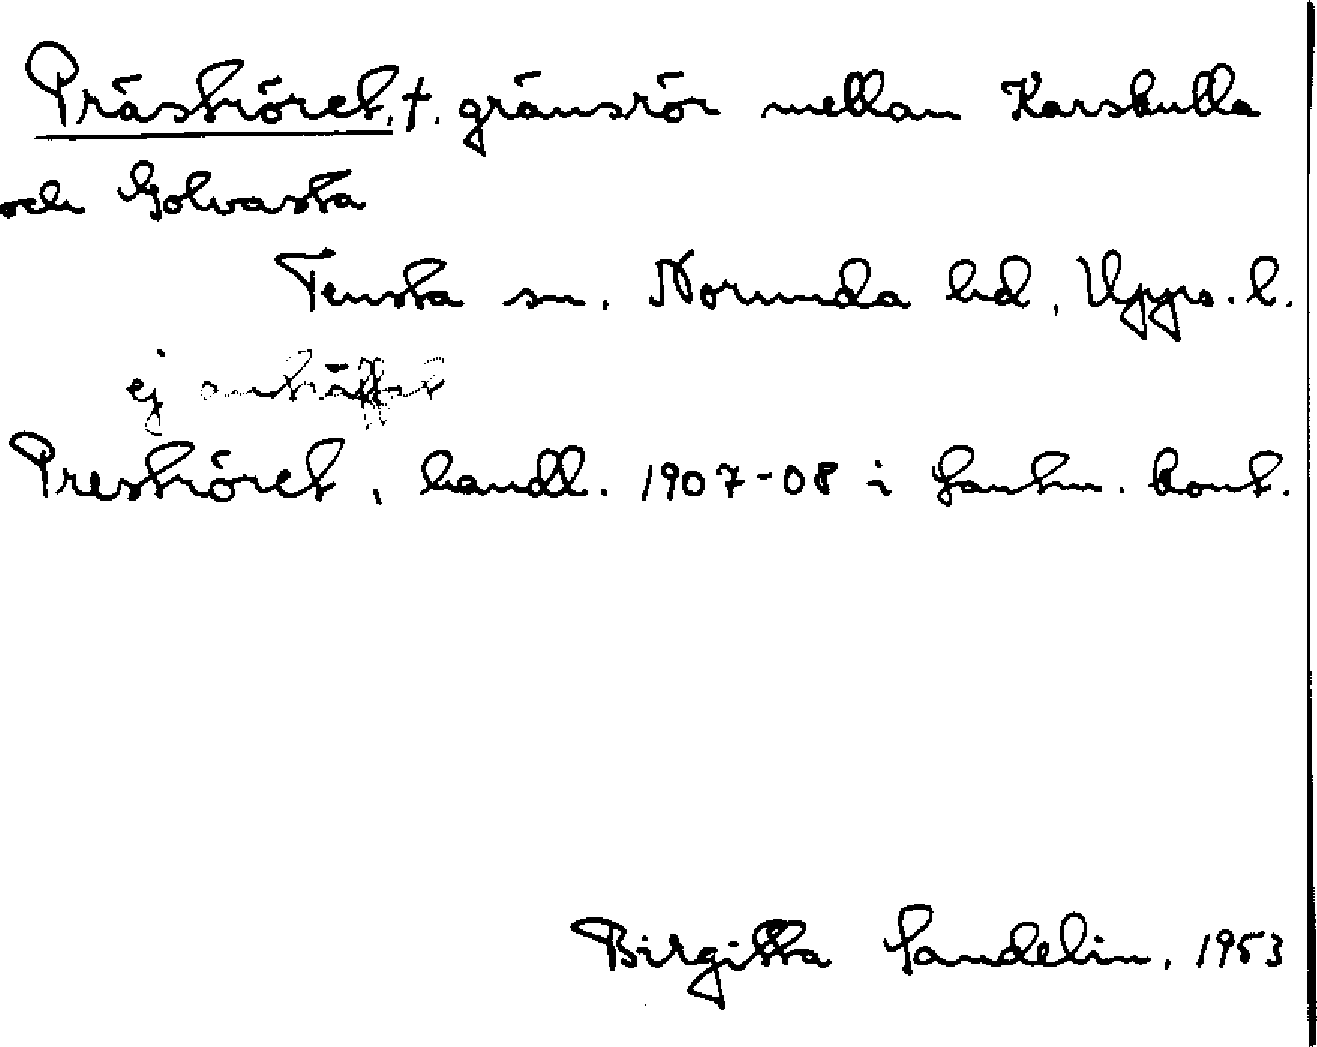 Präströret, †. gränsrör mellan Karskulla
och Golvasta
Tensta sn. Norunda hd, Upps. l.
ej anträffat
Preströret, handl. 1907-08 i Lantm. kont.
Birgitta Sandelin, 1953